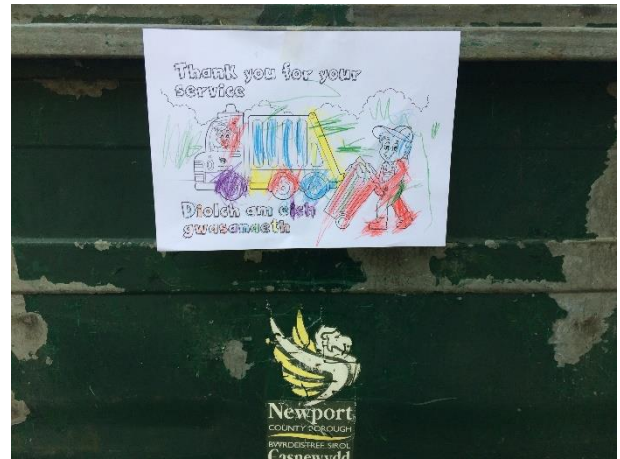 Thank you for your
service
Diolch am eich
gwasanaeth
Newport
COUNTY BOROUGH
BWRDEISTREF SIROL
Casnewydd